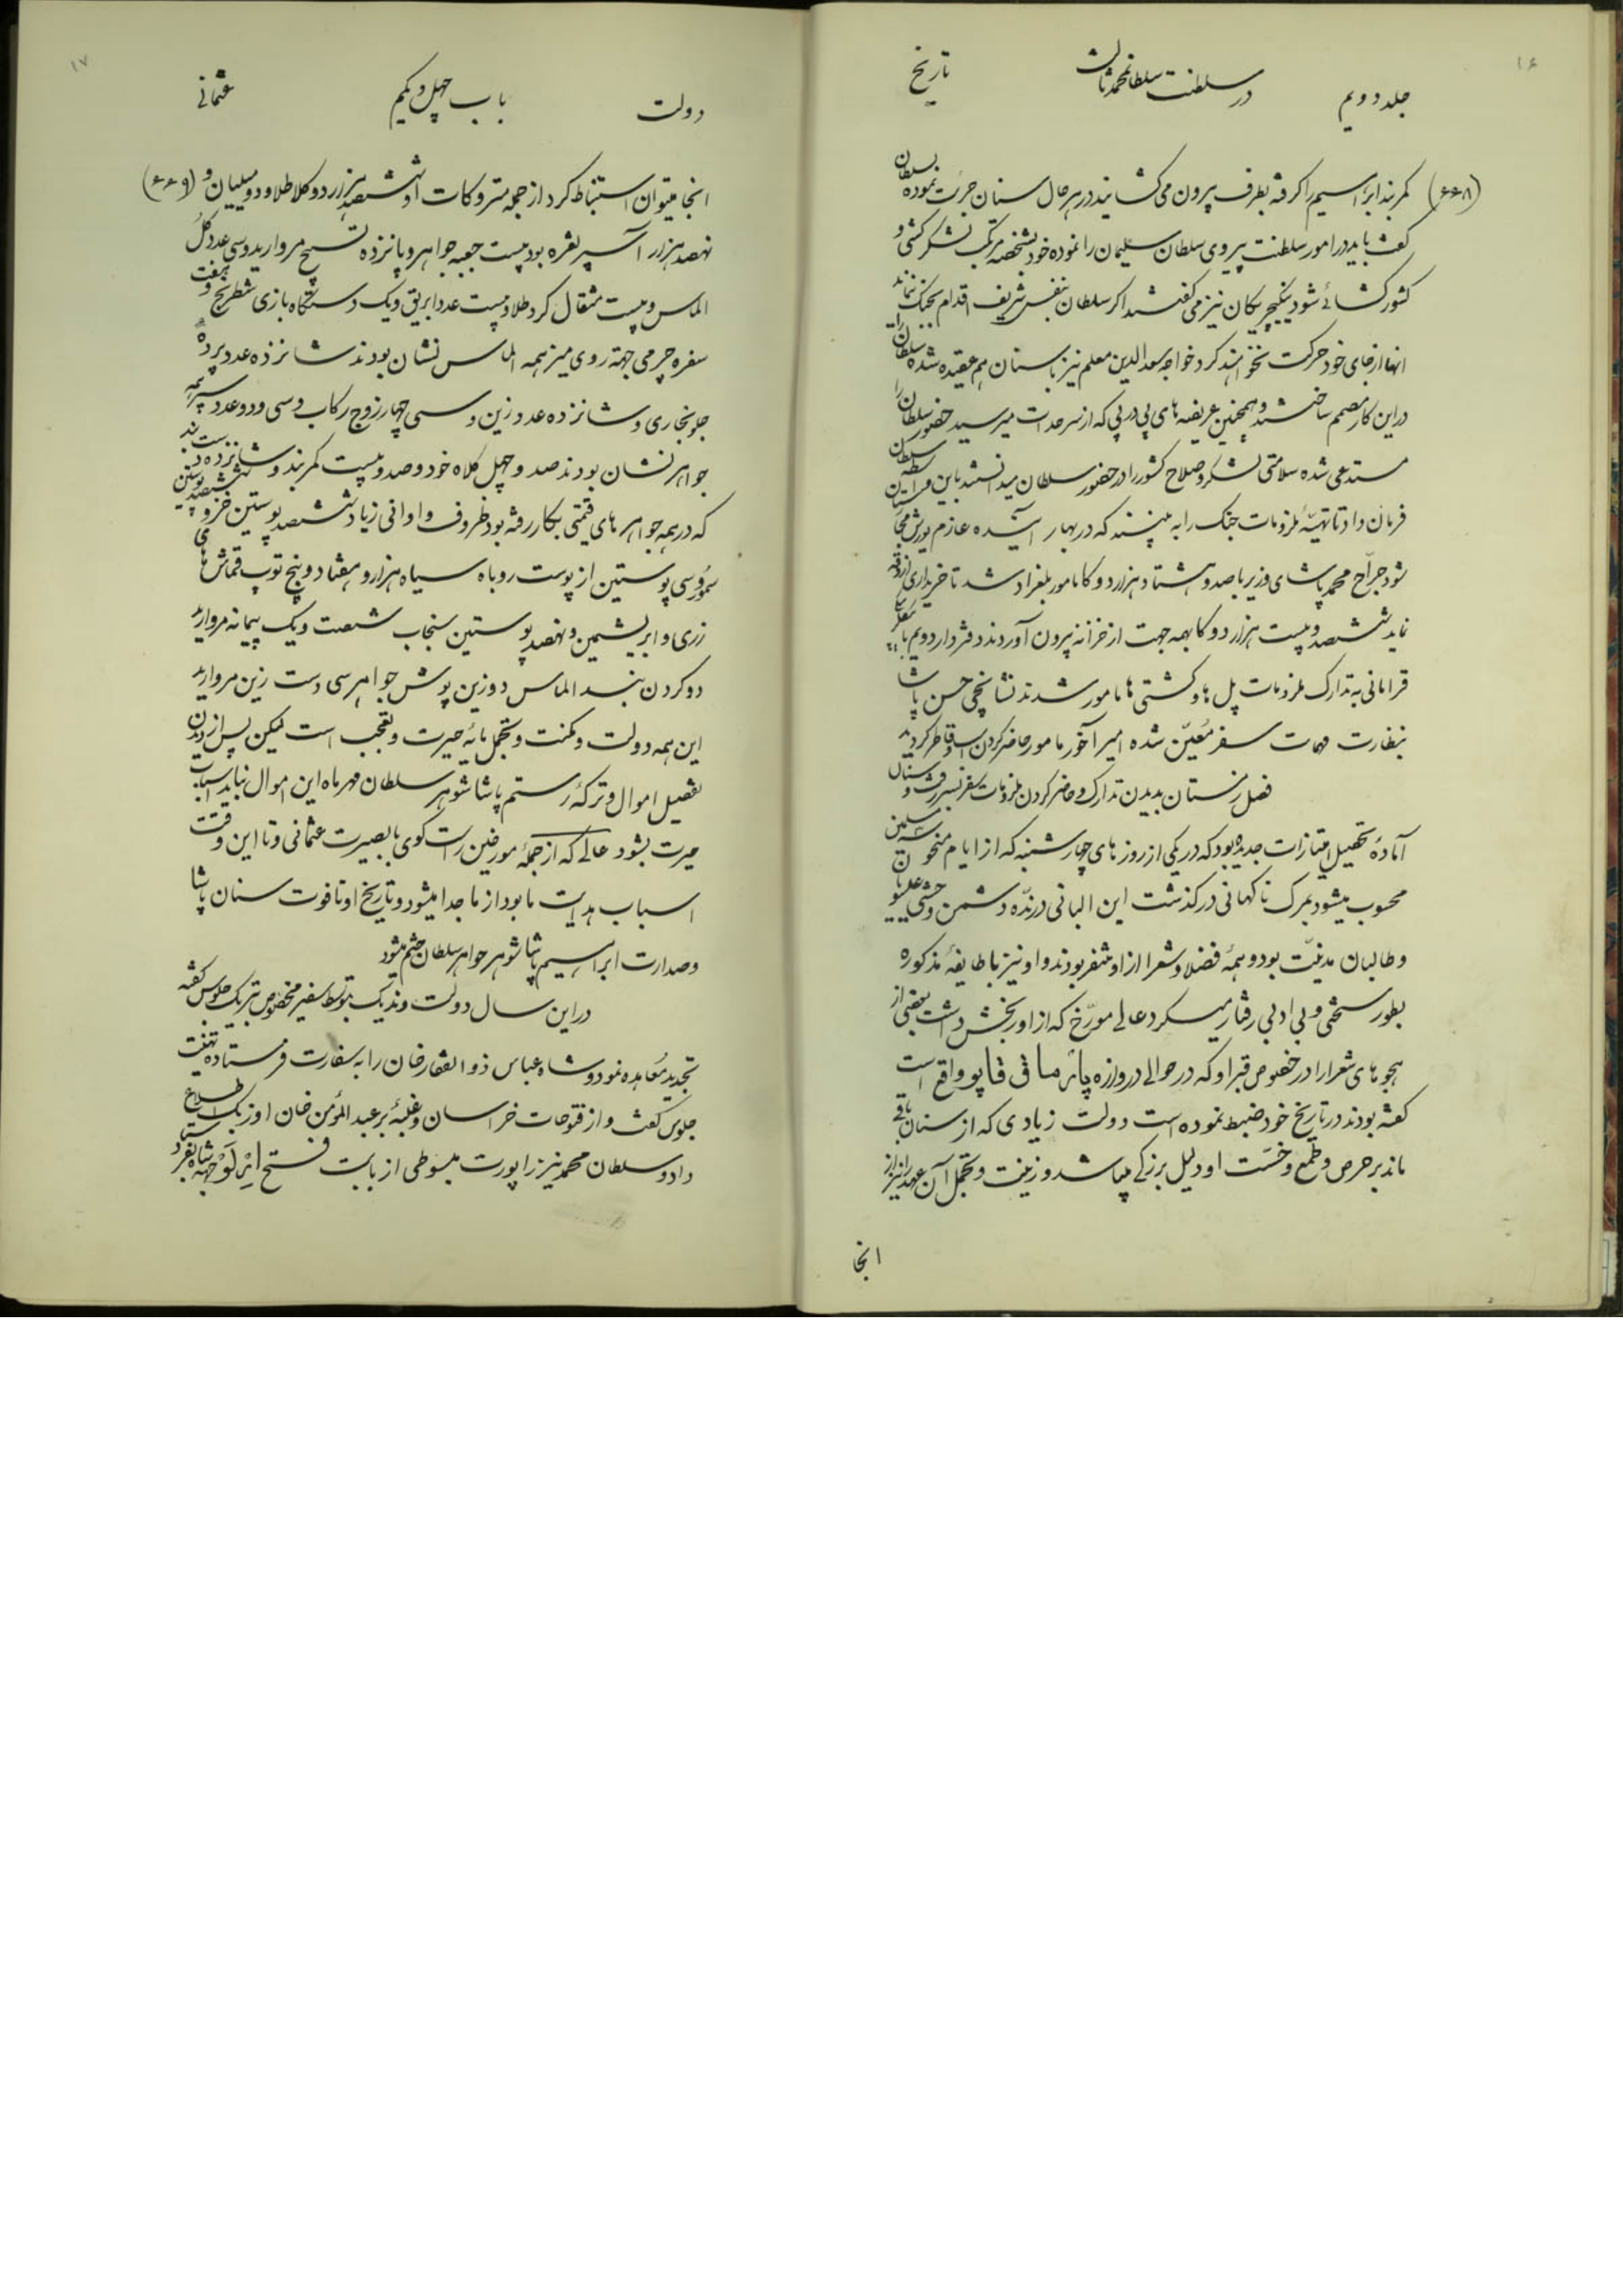 ۱۶
جلد دویم در سلطنت سلطانمحمد ثالث تاریخ
(۶۶۸) کمربند ابراسیم را گرفته بطرف بیرون می کشانید در هر حال سنان جرئت نموده بسلطان
گفت باید در امور سلطنت پیروی سلطان سلیمان را نموده خود بشخصه مرتکب لشکر کشی و
کشور گشائی شود ینگیچریکان نیز می گفتند اگر سلطان بنفس شریف اقدام بجنگ ننماید
انها از جای خود حرکت نخواهند کرد خواجه سعدالدین معلم نیز با سنان هم عقیده شده سلطان را
در این کار مصمم ساختند و همچنین عریضه های پی در پی که از سرحدات میرسید حضور سلطان را
مستدعی شده سلامتی لشکر و صلاح کشور را در حضور سلطان میدانستند باین واسطه سلطان
فرمان داد تا تهیّهٔ ملزومات جنگ را به بینند که در بهار آینده عازم یورش مجارستان
شود جرّاح محمد پاشای وزیر با صد و هشتاد هزار دوکا مامور بلغراد شد تا خریداری آزوقه
نماید ششصد و بیست هزار دوکا بهمه جهت از خزانه بیرون آوردند دفتردار دویم با
قرامانی به تدارک ملزومات پل ها و کشتی ها مامور شدند نشانچی حسن پاشا
بنظارت مهمات سفر مُعیّن شده امیر آخور مامور حاضر کردن اسب و قاطر گردید
فصل زمستان بدیدن تدارک و حاضر کردن ملزومات سفر بسر رفت و سنان
آمادهٔ تحصیل امتیازات جدیده بود که در یکی از روزهای چهارشنبه که از ایام منحوس
محسوب میشود بمرگ ناگهانی درگذشت این البانی درندّه دشمن وحشی علوم
و طالبان مدنیّت بود و همهٔ فضلا و شعرا از او متنفر بودند و او نیز با طایفهٔ مذکوره
بطور سختی و بی ادبی رفتار میکرد عالی مورّخ که از او رنجش داشت بعضی از
هجوهای شعرا را در خصوص قبر او که در حوالی دروازه پارماق قاپو واقع است
گفته بودند در تاریخ خود ضبط نموده است دولت زیادی که از سنان باقی
ماند بر حرص و طمع و خسّت او دلیل بزرگی میباشد و زینت و تجمل آن عهد را نیز از
انجا
۱۷
دولت باب چهل و یکم عثمانی
انجا میتوان استنباط کرد از جمله متروکات او ششصد هزار دوکا طلا و دو میلیان و (۶۶۹)
نهصد هزار آسپر نقره بود بیست جعبه جواهر و پانزده تسبیح مروارید و سی عدد گل
الماس و بیست مثقال گرد طلا و بیست عدد ابریق و یک دستگاه بازی شطرنج و هفت
سفره چرمی جهة روی میز همه الماس نشان بودند شانزده عدد پرده
جلو بخاری و شانزده عدد زین و سی چهار زوج رکاب و سی و دو عدد سپر همه
جواهر نشان بودند صد و چهل کلاه خود و صد و بیست کمربند و شانزده دست بند
که در همه جواهرهای قیمتی بکار رفته بود ظروف و اوانی زیاد ششصد پوستین خز و
سموُر سی پوستین از پوست روباه سیاه هزار و هفتاد و پنج توپ قماش های
زری و ابریشمین و نهصد پوستین سنجاب شصت و یک پیمانه مروارید
دو گردن بند الماس دو زین پوش جواهر سی دست زین مروارید
این همه دولت و مکنت و تجمل مایهٔ حیرت و تعجب است لیکن پس از دیدن
تفصیل اموال و ترکهٔ رستم پاشا شوهر سلطان مهرماه این اموال نباید اسباب
حیرت بشود عالی که از جملهٔ مورخین راست گوی با بصیرت عثمانی و تا این وقت
اسباب هدایت ما بود از ما جدا میشود و تاریخ او تا فوت سنان پاشا
و صدارت ابراسیم پاشا شوهر خواهر سلطان ختم میشود
در این سال دولت وندیک بتوسط سفیر مخصوص تبریک جلوس گفته
تجدید مُعاهده نمود و شاه عباس ذوالفقار خان را به سفارت فرستاده تهنیت
جلوس گفت و از فتوحات خراسان و غلبهٔ بر عبدالمؤمن خان اوزبک اطلاع
داد و سلطان محمد نیز راپورت مبسوطی از بابت فتح ایرلَوْ جهة شاه